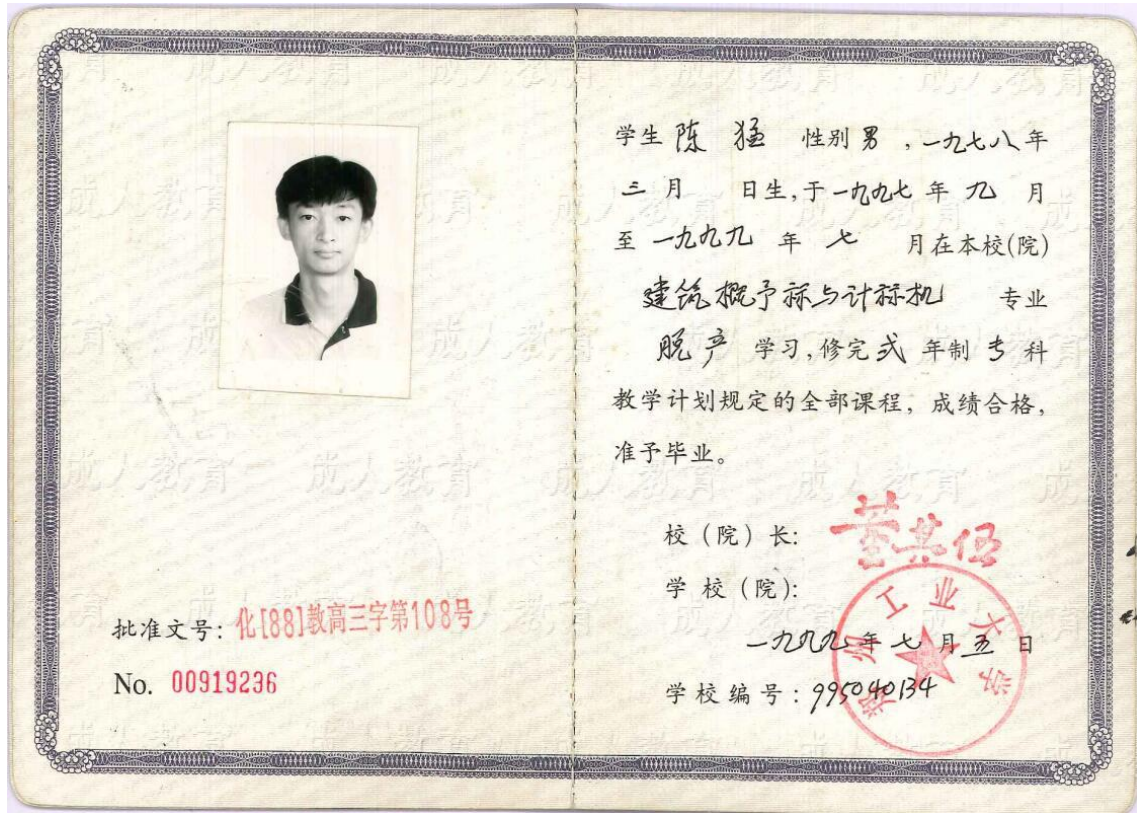 批准文号: 化[88]教高三字第108号
No. 00919236
学生 陈猛 性别 男 , 一九七八年
三月 日生,于一九九七年九月
至一九九九年七月在本校(院)
建筑概予标与计标机 专业
脱产 学习,修完弍年制专科
教学计划规定的全部课程, 成绩合格,
准予毕业。
校(院)长: 董其伍
学校(院):
郑州工业大学
一九九九年七月五日
学校编号: 995040134
成人教育